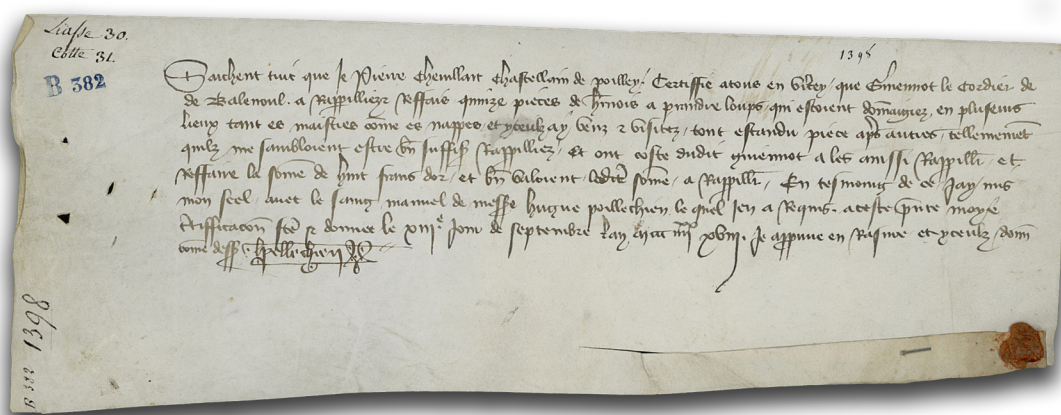 Liasse 30.
Cotte 31.
B 382
1398
Saichent tuit que Je Pierre Chemllart Chastellain de poilley. Certiffie a tous en verey que Guiennot le Cordier de
de Balenoul. a Rappillieyr Reffais quinze pieces de hernois a prandre loups qui estoient domaigiez en pluseurs
lieux tant es maistres come es nappes et yceulz ay veuz et visitez tout estandu piece apres autres tellement
quilz me sambloient estre bn suffis Rappilliez. Et ont coste dudit guiennot a les aussi Rappilli et
Reffaire la some de huit frans dor. et bn valoient ledite some a Rappilli. En tesmoing de ce Jay mis
mon seel. avec le saing manuel de messe hugue poillechien le quel Jen a Requis. a ceste pnte moye
certifficacon fte et donnee le xiiie Jour de septembre lan mil iiic iiiixx xviii. Je appreuve en Rasure et yceulz donn
come dess. hpellechien
1398
B 382